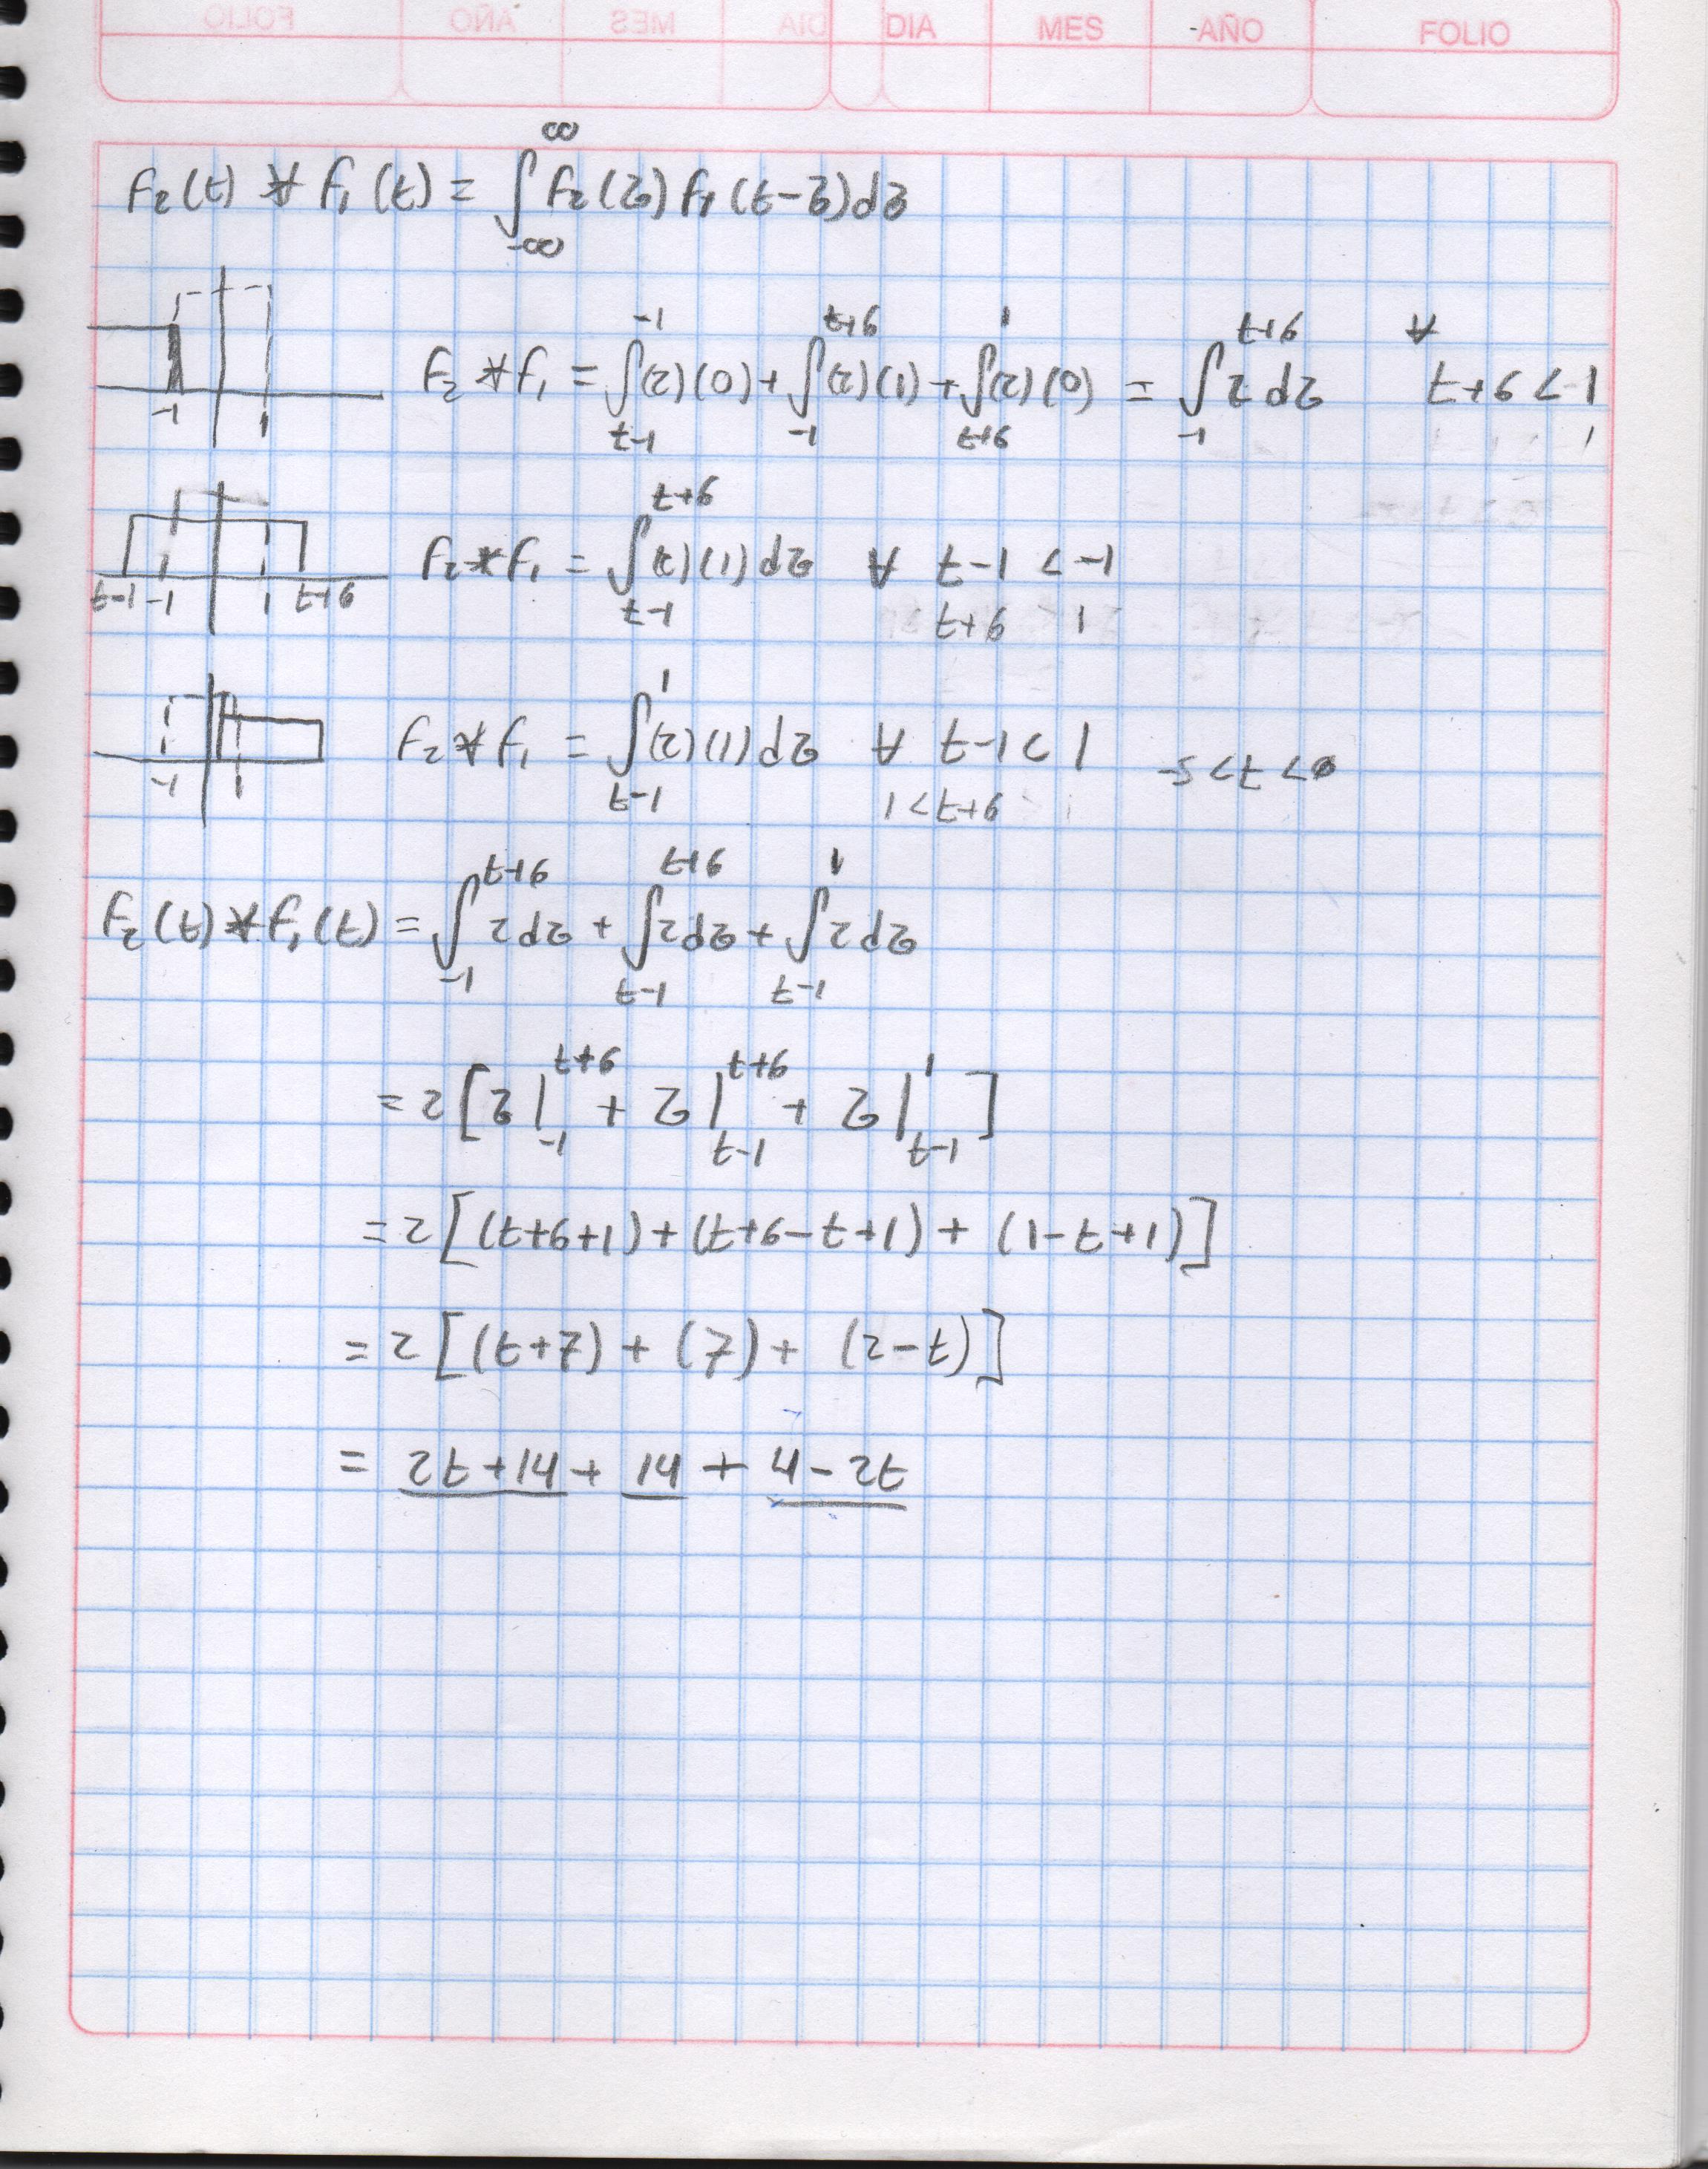 DIA MES AÑO FOLIO
f₂(t) * f₁(t) = ∫_{-∞}^{∞} f₂(z) f₁(t-z)dz
-1 1
f₂ * f₁ = ∫_{t-1}^{-1} (2)(0) + ∫_{-1}^{t+6} (2)(1) + ∫_{t+6}^{1} (2)(0) = ∫_{-1}^{t+6} 2 dz ∀ t+6 < -1
1
t-1 -1 1 t+6
f₂ * f₁ = ∫_{t-1}^{t+6} (2)(1) dz ∀ t-1 < -1
t+6 1
-1 1
f₂ * f₁ = ∫_{t-1}^{1} (2)(1) dz ∀ t-1 < 1 -5 < t < 0
1 < t+6
f₂(t) * f₁(t) = ∫_{-1}^{t+6} 2dz + ∫_{t-1}^{t+6} 2dz + ∫_{t-1}^{1} 2dz
= 2 [ z|_{-1}^{t+6} + z|_{t-1}^{t+6} + z|_{t-1}^{1} ]
= 2 [ (t+6+1) + (t+6-t+1) + (1-t+1) ]
= 2 [ (t+7) + (7) + (2-t) ]
= 2t+14 + 14 + 4-2t